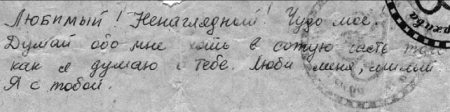 Любимый! Ненаглядный! Чудо мое.
Думай обо мне хоть в сотую часть
как я думаю о тебе. Люби меня, милый
Я с тобой.